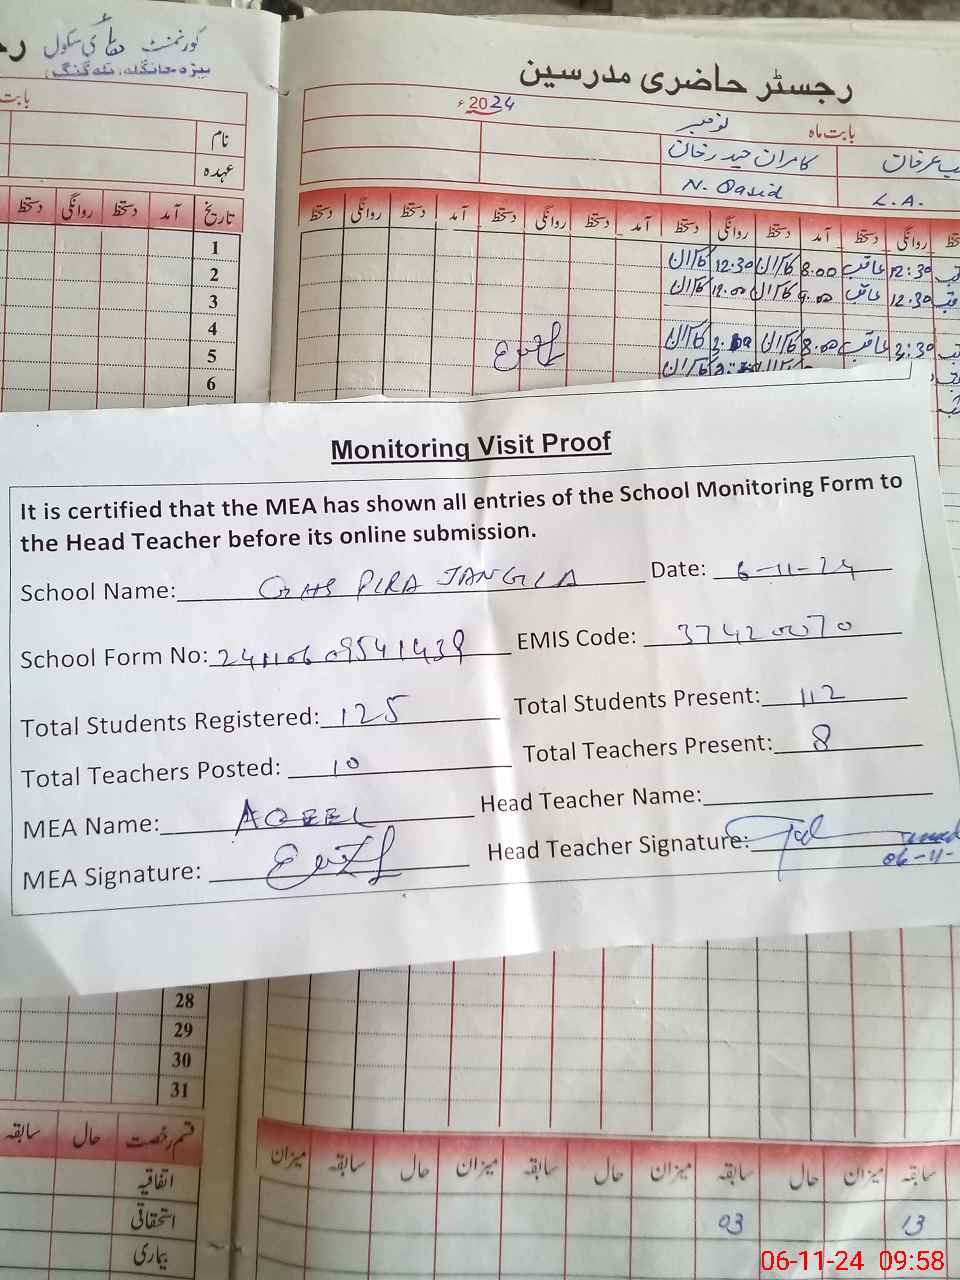 گورنمنٹ ہائی سکول
رجسٹر حاضری مدرسین
2024ء
بابت ماہ نومبر
نام
کامران حیدر خان
عہدہ
N. Qasid
L.A.
دستخط روانگی دستخط آمد تاریخ
دستخط روانگی دستخط آمد دستخط روانگی دستخط آمد دستخط روانگی دستخط آمد دستخط روانگی
1
کامران 12.30 کامران 8.00 عاقب 12:30
2
کامران 12.00 کامران 9.00 عاقب 12.30
3
4
کامران کامران 8.00 عاقب 2:30
5
6
Monitoring Visit Proof
It is certified that the MEA has shown all entries of the School Monitoring Form to
the Head Teacher before its online submission.
School Name: GHS PIRA JANGLA Date: 6-11-24
School Form No: 241106 09541439 EMIS Code: 37420070
Total Students Registered: 125 Total Students Present: 112
Total Teachers Posted: 10 Total Teachers Present: 8
MEA Name: AQEEL Head Teacher Name:
MEA Signature: Head Teacher Signature:
06-11-
28
29
30
31
سابقہ حال قسم رخصت
میزان سابقہ حال میزان سابقہ حال میزان سابقہ حال میزان سابقہ
اتفاقیہ
استحقاقی
03 13
بیماری
06-11-24 09:58